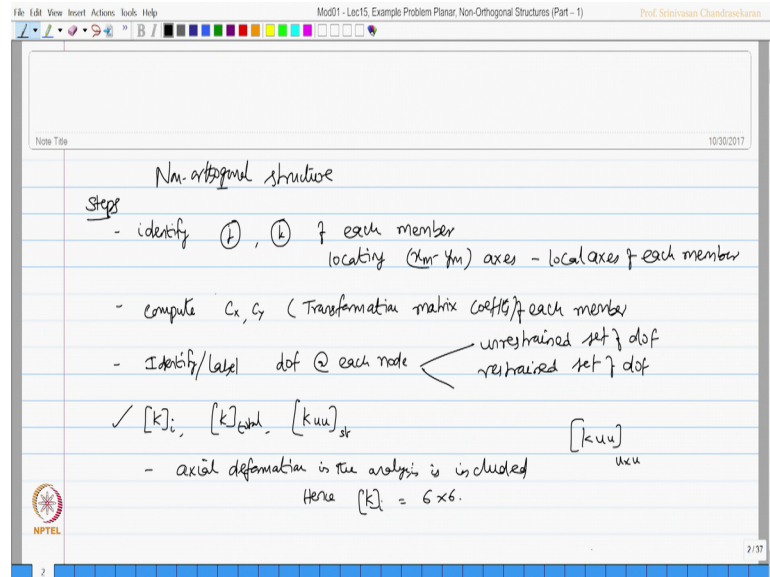 File Edit View Insert Actions Tools Help
Mod01 - Lec15, Example Problem Planar, Non-Orthogonal Structures (Part – 1)
Prof. Srinivasan Chandrasekaran
B I
Note Title
10/30/2017
Non-orthogonal structure
Steps
- identify (j), (k) of each member
locating (xm-ym) axes - local axes of each member
- compute Cx, Cy (Transformation matrix coeff's) of each member
- Identify/Label dof @ each node
unrestrained set of dof
restrained set of dof
✓ [k]i, [k]total, [kuu]str
[kuu]uxu
- axial deformation in the analysis is included
Hence [k]i = 6x6.
NPTEL
2/37
2